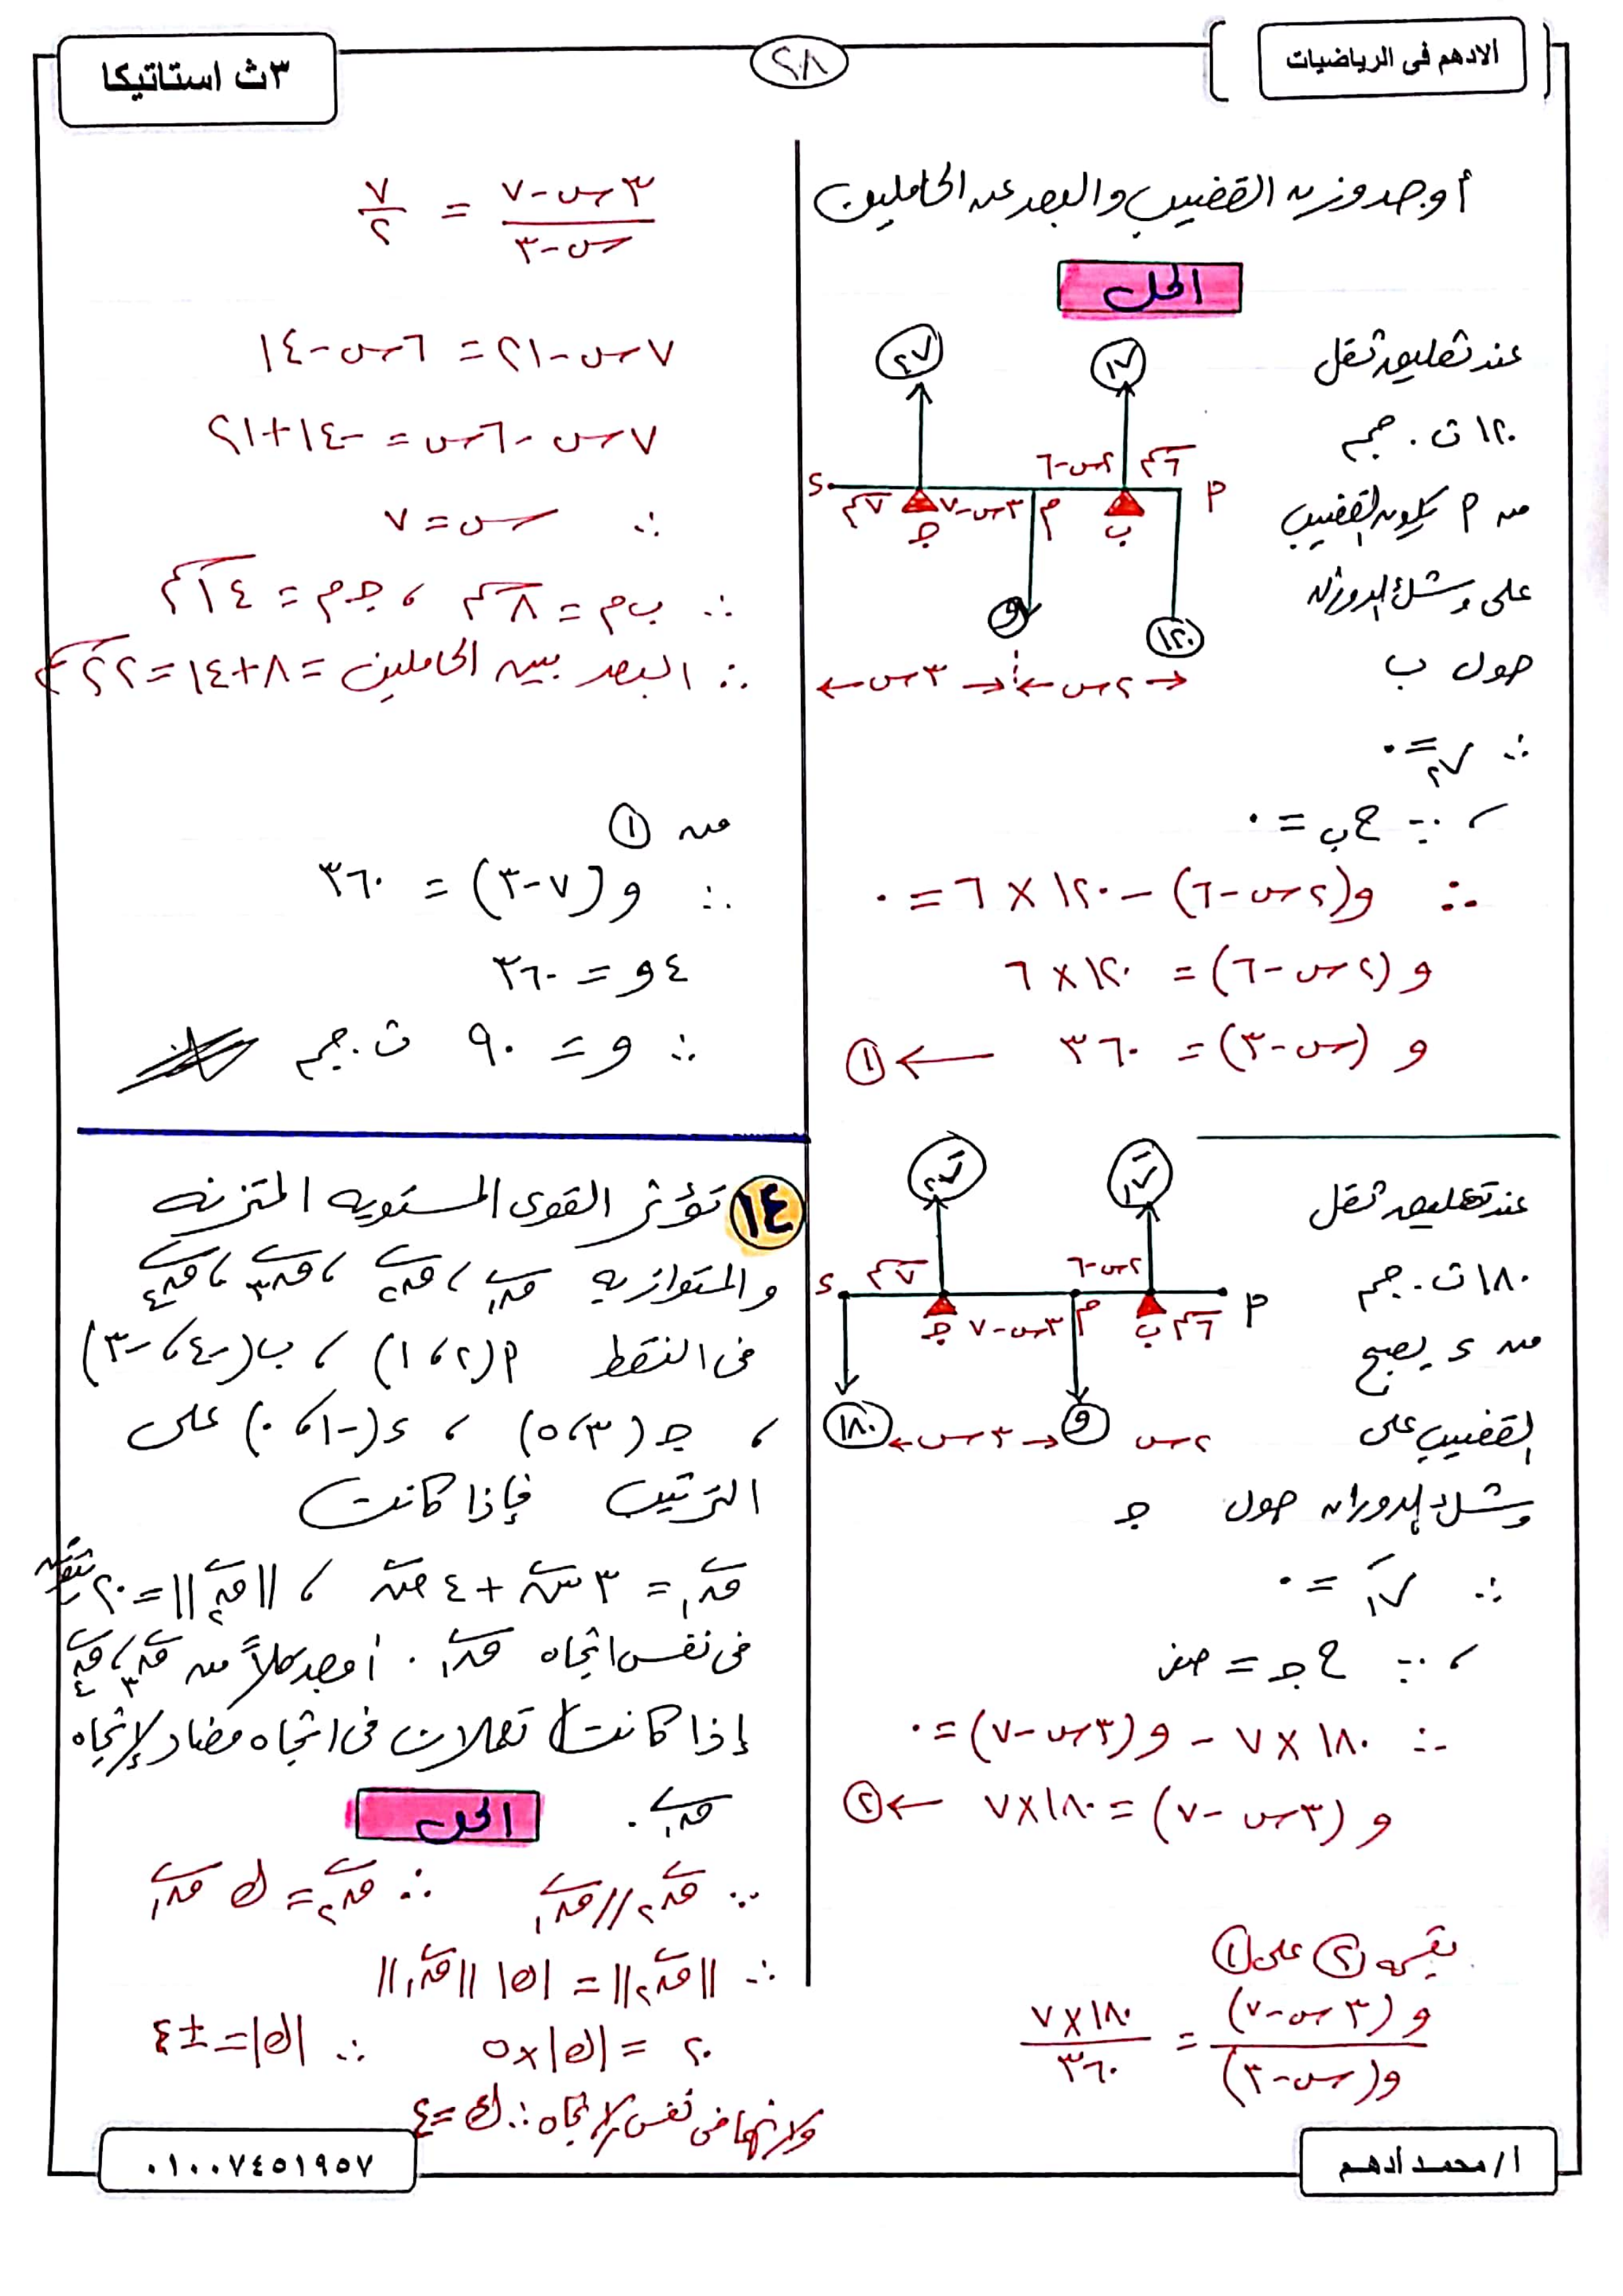 الادهم فى الرياضيات
٢٨
٣ث استاتيكا
أوجد وزن القضيب والبعد عن الحاملين
الحل
عند تعليق ثقل
١٢٠ ث . جم
من م يكون القضيب
على وشك الدوران
حول ب
∴ ر٢ = ٠
، ∵ ج ب = ٠
∴ و(٢س-٦) - ١٢٠ × ٦ = ٠
و (٢س-٦) = ١٢٠ × ٦
و (س-٣) = ٣٦٠ ← ①
ر٢ ر١
٢س-٦ ٦سم
ء ٧سم ٣س-٧ م P
ج ب
و ١٢٠
← ٣س → ← ٢س →
عند تعليق ثقل
١٨٠ ث . جم
من ء يصبح
القضيب على
وشك الدوران حول ج
∴ ر١َ = ٠
، ∵ ج ج = صفر
∴ ١٨٠ × ٧ - و(٣س-٧) = ٠
و (٣س-٧) = ١٨٠×٧ ← ②
ر٢َ ر١َ
ء ٧سم ٢س-٦ P
ج ٣س-٧ م ب ٦سم
١٨٠ ← ٣س → و ٢س
بقسمة ② على ①
و (٣س-٧) / و(س-٣) = ١٨٠×٧ / ٣٦٠
٣س-٧ / س-٣ = ٧ / ٢
٧س-٢١ = ٦س-١٤
٧س-٦س = -١٤+٢١
∴ س = ٧
∴ ب م = ٨سم ، ج م = ١٤سم
∴ البعد بين الحاملين = ٨+١٤ = ٢٢سم
من ①
∴ و (٧-٣) = ٣٦٠
٤و = ٣٦٠
∴ و = ٩٠ ث.جم
١٤ تؤثر القوى المستويه المتزنه
والمتوازيه ق١ ، ق٢ ، ق٣ ، ق٤
فى النقط P(٢ ، ١) ، ب(-٤ ، -٣)
، ج(٣ ، ٥) ، ء(-١ ، ٠) على
الترتيب فإذا كانت
ق١ = ٣س + ٤ص ، ||ق٢|| = ٢٠ نيوتن
فى نفس اتجاه ق١ . أوجد كلاً من ق٣ ، ق٤
إذا كانتا تعملان فى اتجاه مضاد لإتجاه
ق١ .
الحل
∵ ق٢ // ق١ ∴ ق٢ = ك ق١
∴ ||ق٢|| = |ك| ||ق١||
٢٠ = |ك|×٥ ∴ |ك| = ±٤
ولأنها فى نفس الإتجاه ∴ ك = ٤
أ/ محمد أدهم
٠١٠٠٧٤٥١٩٥٧